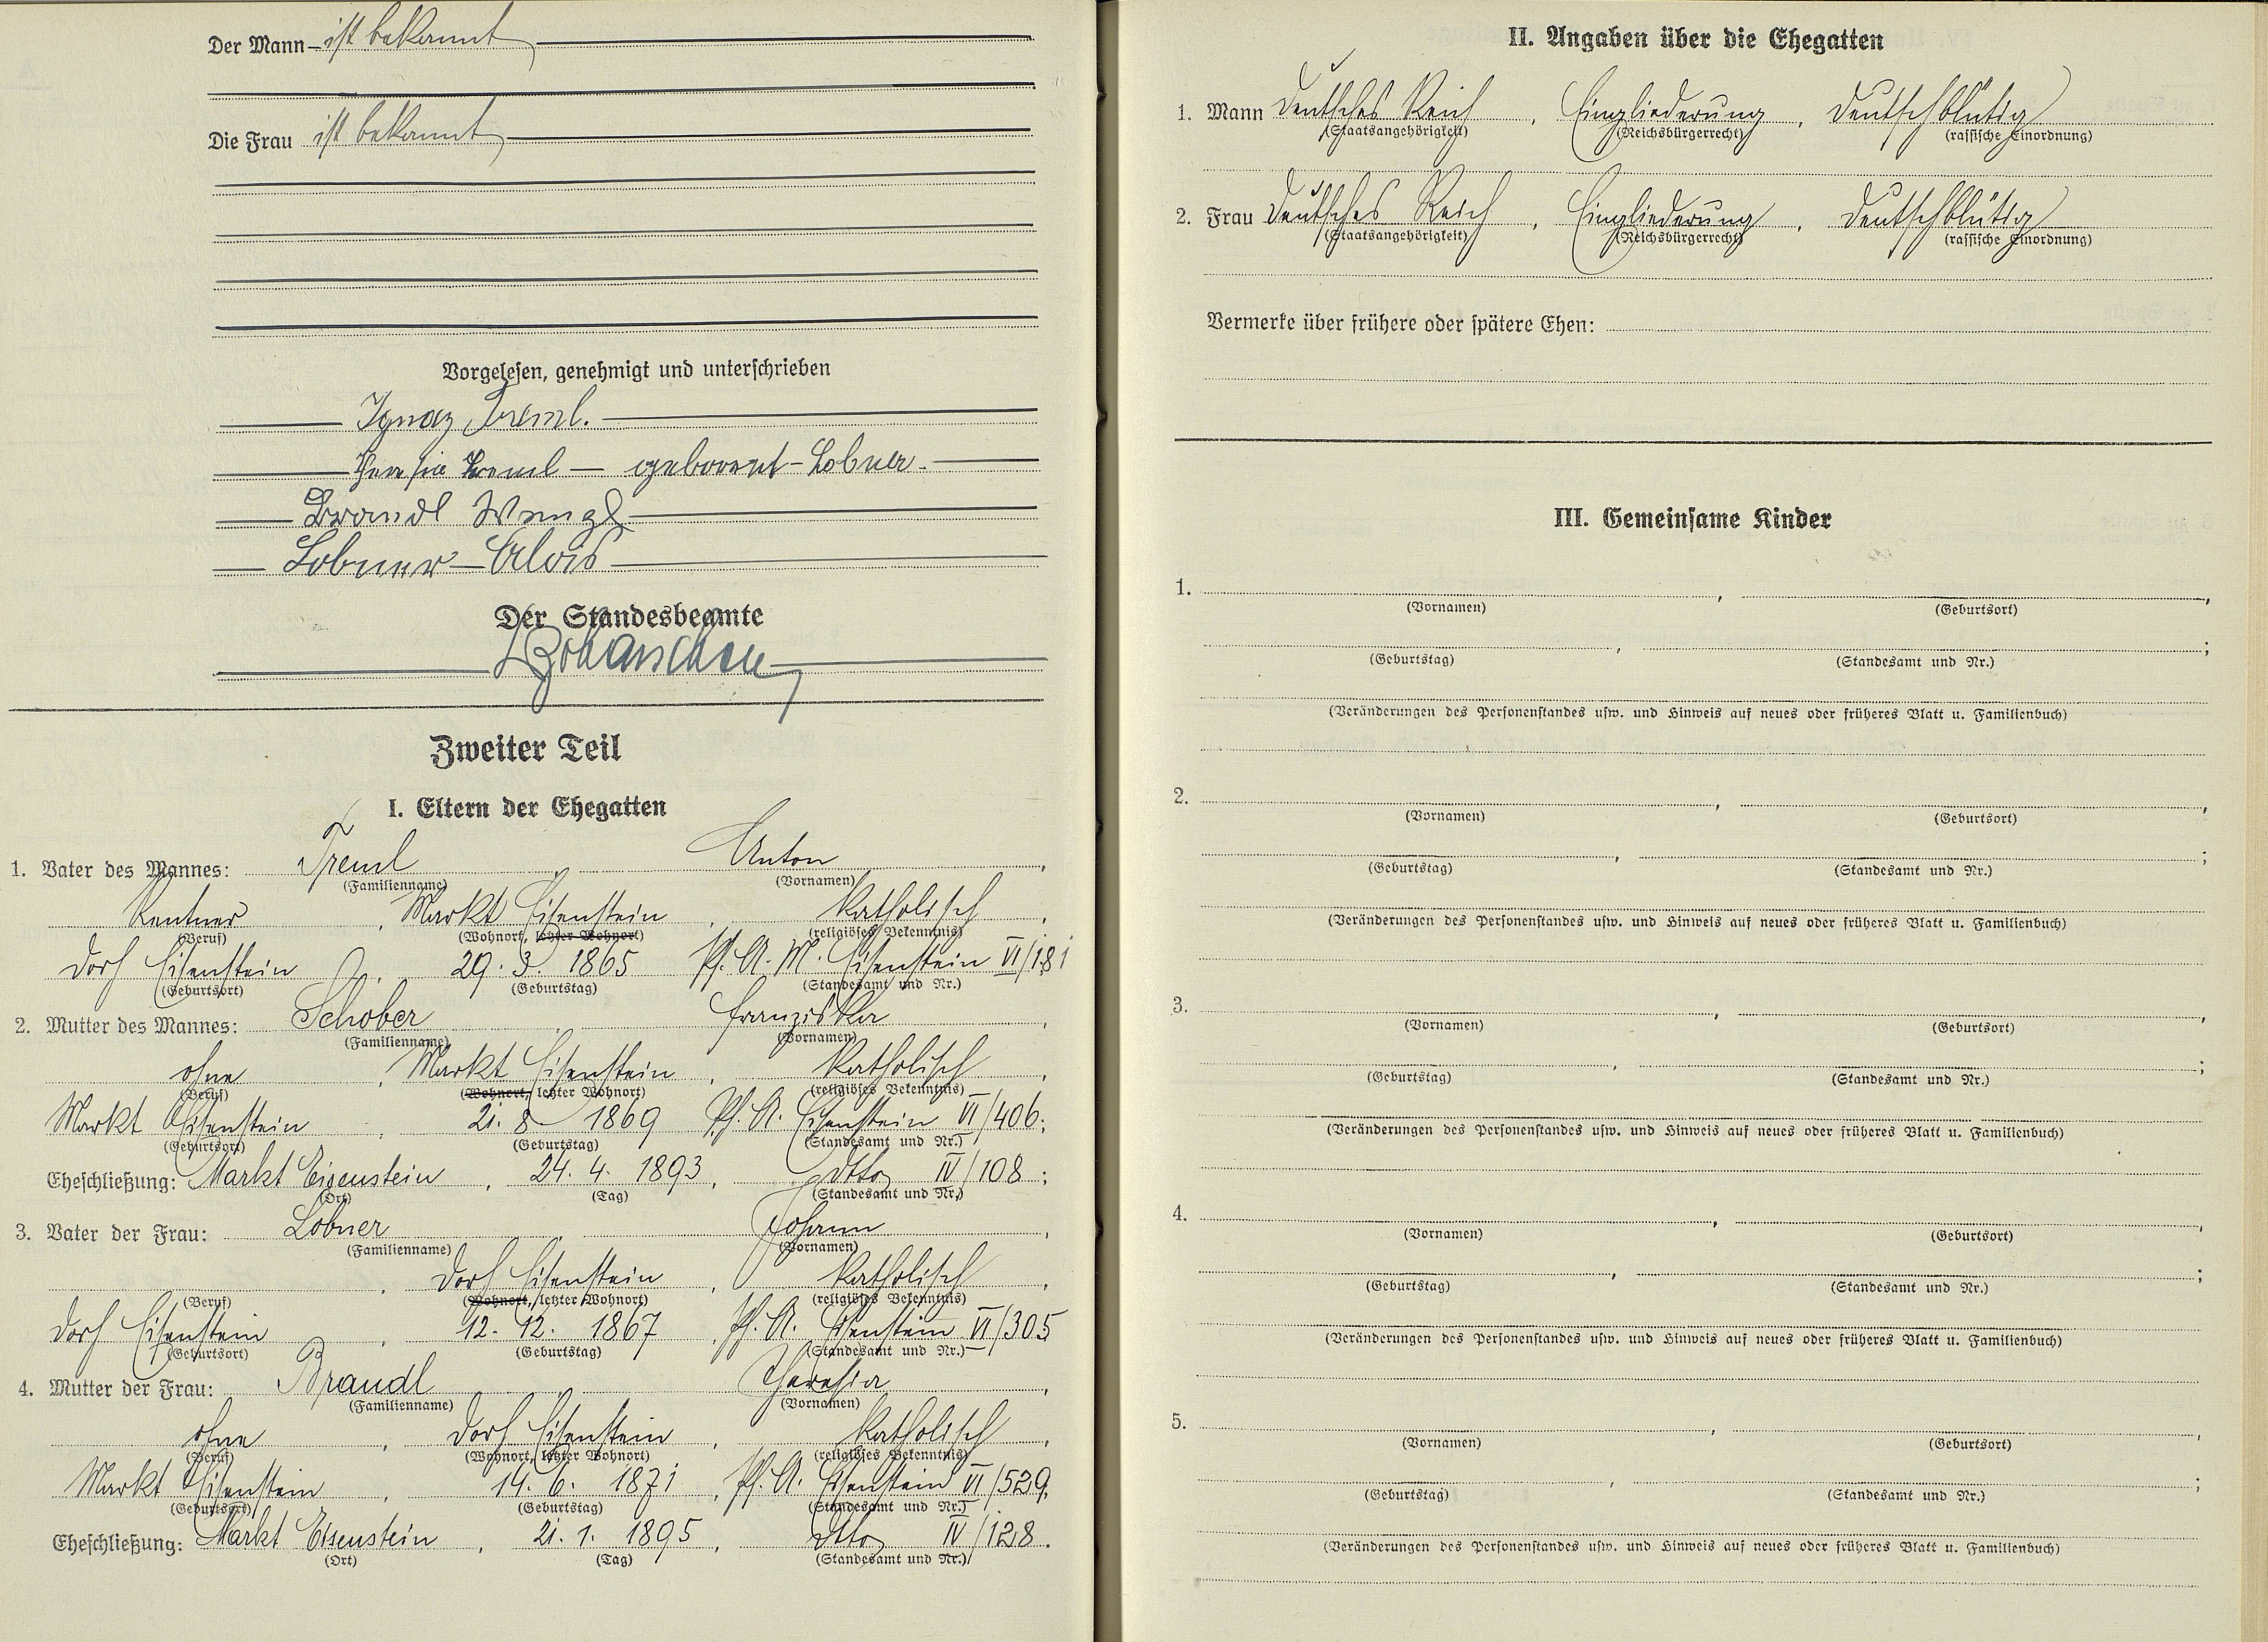 Der Mann ist bekannt
Die Frau ist bekannt
Vorgelesen, genehmigt und unterschrieben
Ignaz Treml.
Theresia Treml geborene Lobner.
Brandl Wenzl
Lobner Alois
Der Standesbeamte
Zweiter Teil
I. Eltern der Ehegatten
1. Vater des Mannes: Treml, Anton,
(Familienname) (Vornamen)
Rentner, Markt Eisenstein, katholisch,
(Beruf) (Wohnort, letzter Wohnort) (religiöses Bekenntnis)
Dorf Eisenstein, 29. 3. 1865 Pf. A. M. Eisenstein VI/181
(Geburtsort) (Geburtstag) (Standesamt und Nr.)
2. Mutter des Mannes: Schober, Franziska,
(Familienname) (Vornamen)
ohne, Markt Eisenstein, katholisch,
(Beruf) (Wohnort, letzter Wohnort) (religiöses Bekenntnis)
Markt Eisenstein, 21. 8. 1869 Pf. A. Eisenstein VI/406;
(Geburtsort) (Geburtstag) (Standesamt und Nr.)
Eheschließung: Markt Eisenstein, 24. 4. 1893, dtto IV/108;
(Ort) (Tag) (Standesamt und Nr.)
3. Vater der Frau: Lobner, Johann,
(Familienname) (Vornamen)
Dorf Eisenstein, katholisch,
(Beruf) (Wohnort, letzter Wohnort) (religiöses Bekenntnis)
Dorf Eisenstein, 12. 12. 1867, Pf. A. Eisenstein VI/305
(Geburtsort) (Geburtstag) (Standesamt und Nr.)
4. Mutter der Frau: Brandl, Theresia,
(Familienname) (Vornamen)
ohne, Dorf Eisenstein, katholisch,
(Beruf) (Wohnort, letzter Wohnort) (religiöses Bekenntnis)
Markt Eisenstein, 14. 6. 1871, Pf. A. Eisenstein VI/529,
(Geburtsort) (Geburtstag) (Standesamt und Nr.)
Eheschließung: Markt Eisenstein, 21. 1. 1895, dtto IV/128.
(Ort) (Tag) (Standesamt und Nr.)
II. Angaben über die Ehegatten
1. Mann Deutsches Reich, Eingliederung, deutschblütig
(Staatsangehörigkeit) (Reichsbürgerrecht) (rassische Einordnung)
2. Frau Deutsches Reich, Eingliederung, deutschblütig
(Staatsangehörigkeit) (Reichsbürgerrecht) (rassische Einordnung)
Vermerke über frühere oder spätere Ehen:
III. Gemeinsame Kinder
1. , ,
(Vornamen) (Geburtsort)
, ;
(Geburtstag) (Standesamt und Nr.)
(Veränderungen des Personenstandes usw. und Hinweis auf neues oder früheres Blatt u. Familienbuch)
2. , ,
(Vornamen) (Geburtsort)
, ;
(Geburtstag) (Standesamt und Nr.)
(Veränderungen des Personenstandes usw. und Hinweis auf neues oder früheres Blatt u. Familienbuch)
3. , ,
(Vornamen) (Geburtsort)
, ;
(Geburtstag) (Standesamt und Nr.)
(Veränderungen des Personenstandes usw. und Hinweis auf neues oder früheres Blatt u. Familienbuch)
4. , ,
(Vornamen) (Geburtsort)
, ;
(Geburtstag) (Standesamt und Nr.)
(Veränderungen des Personenstandes usw. und Hinweis auf neues oder früheres Blatt u. Familienbuch)
5. , ,
(Vornamen) (Geburtsort)
, ;
(Geburtstag) (Standesamt und Nr.)
(Veränderungen des Personenstandes usw. und Hinweis auf neues oder früheres Blatt u. Familienbuch)